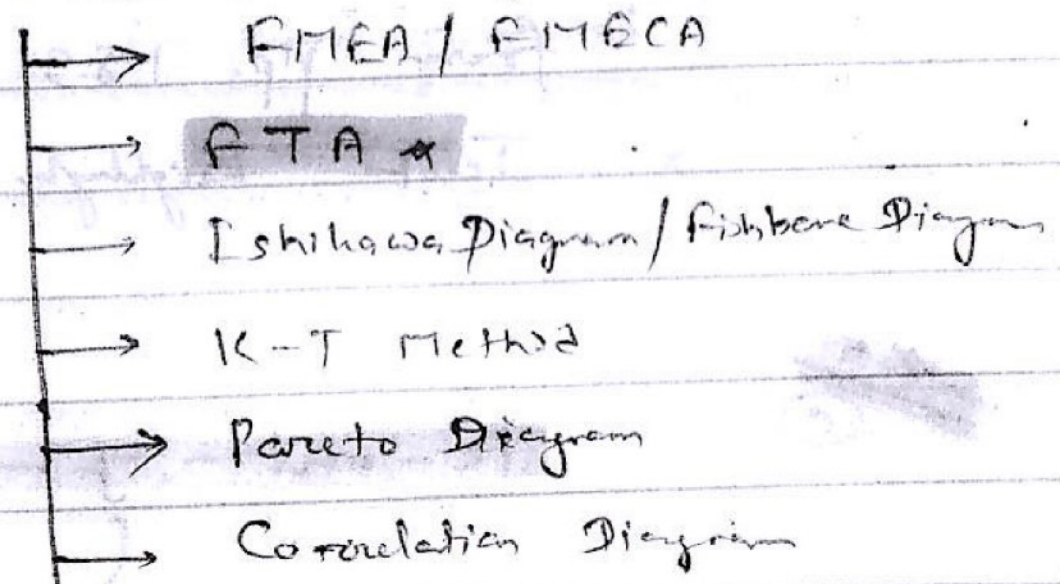 FMEA / FMECA
FTA *
Ishikawa Diagram / Fishbone Diagram
K-T Method
Pareto Diagram
Correlation Diagram